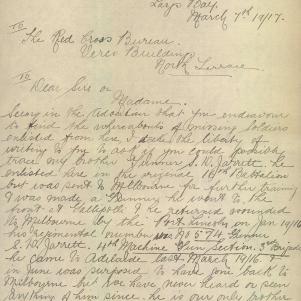 Largs Bay.
March 7th 1917.
To
The Red Cross Bureau.
Verco Buildings
North Terrace
To
Dear Sir or
Madame.
Seeing in the that you endeavour
to find the whereabouts of missing soldiers
enlisted from here, I take the liberty of
writing to you to ask if you could possibly
trace my brother Gunner S. W. Jarrett. He
enlisted here in the original 16th Battalion
but was sent to Melbourne for further training
& was made a Gunner, he went to the
front & Gallipoli & he returned wounded
to Melbourne by the on Jan 19/16
his regimental number Gunner
S. W. Jarrett. Machine Gun Section. 3rd Brigade
he came to Adelaide last March 1916. &
in June was supposed to have gone back to
Melbourne but we have never heard or seen
anything of him since. he is our only brother